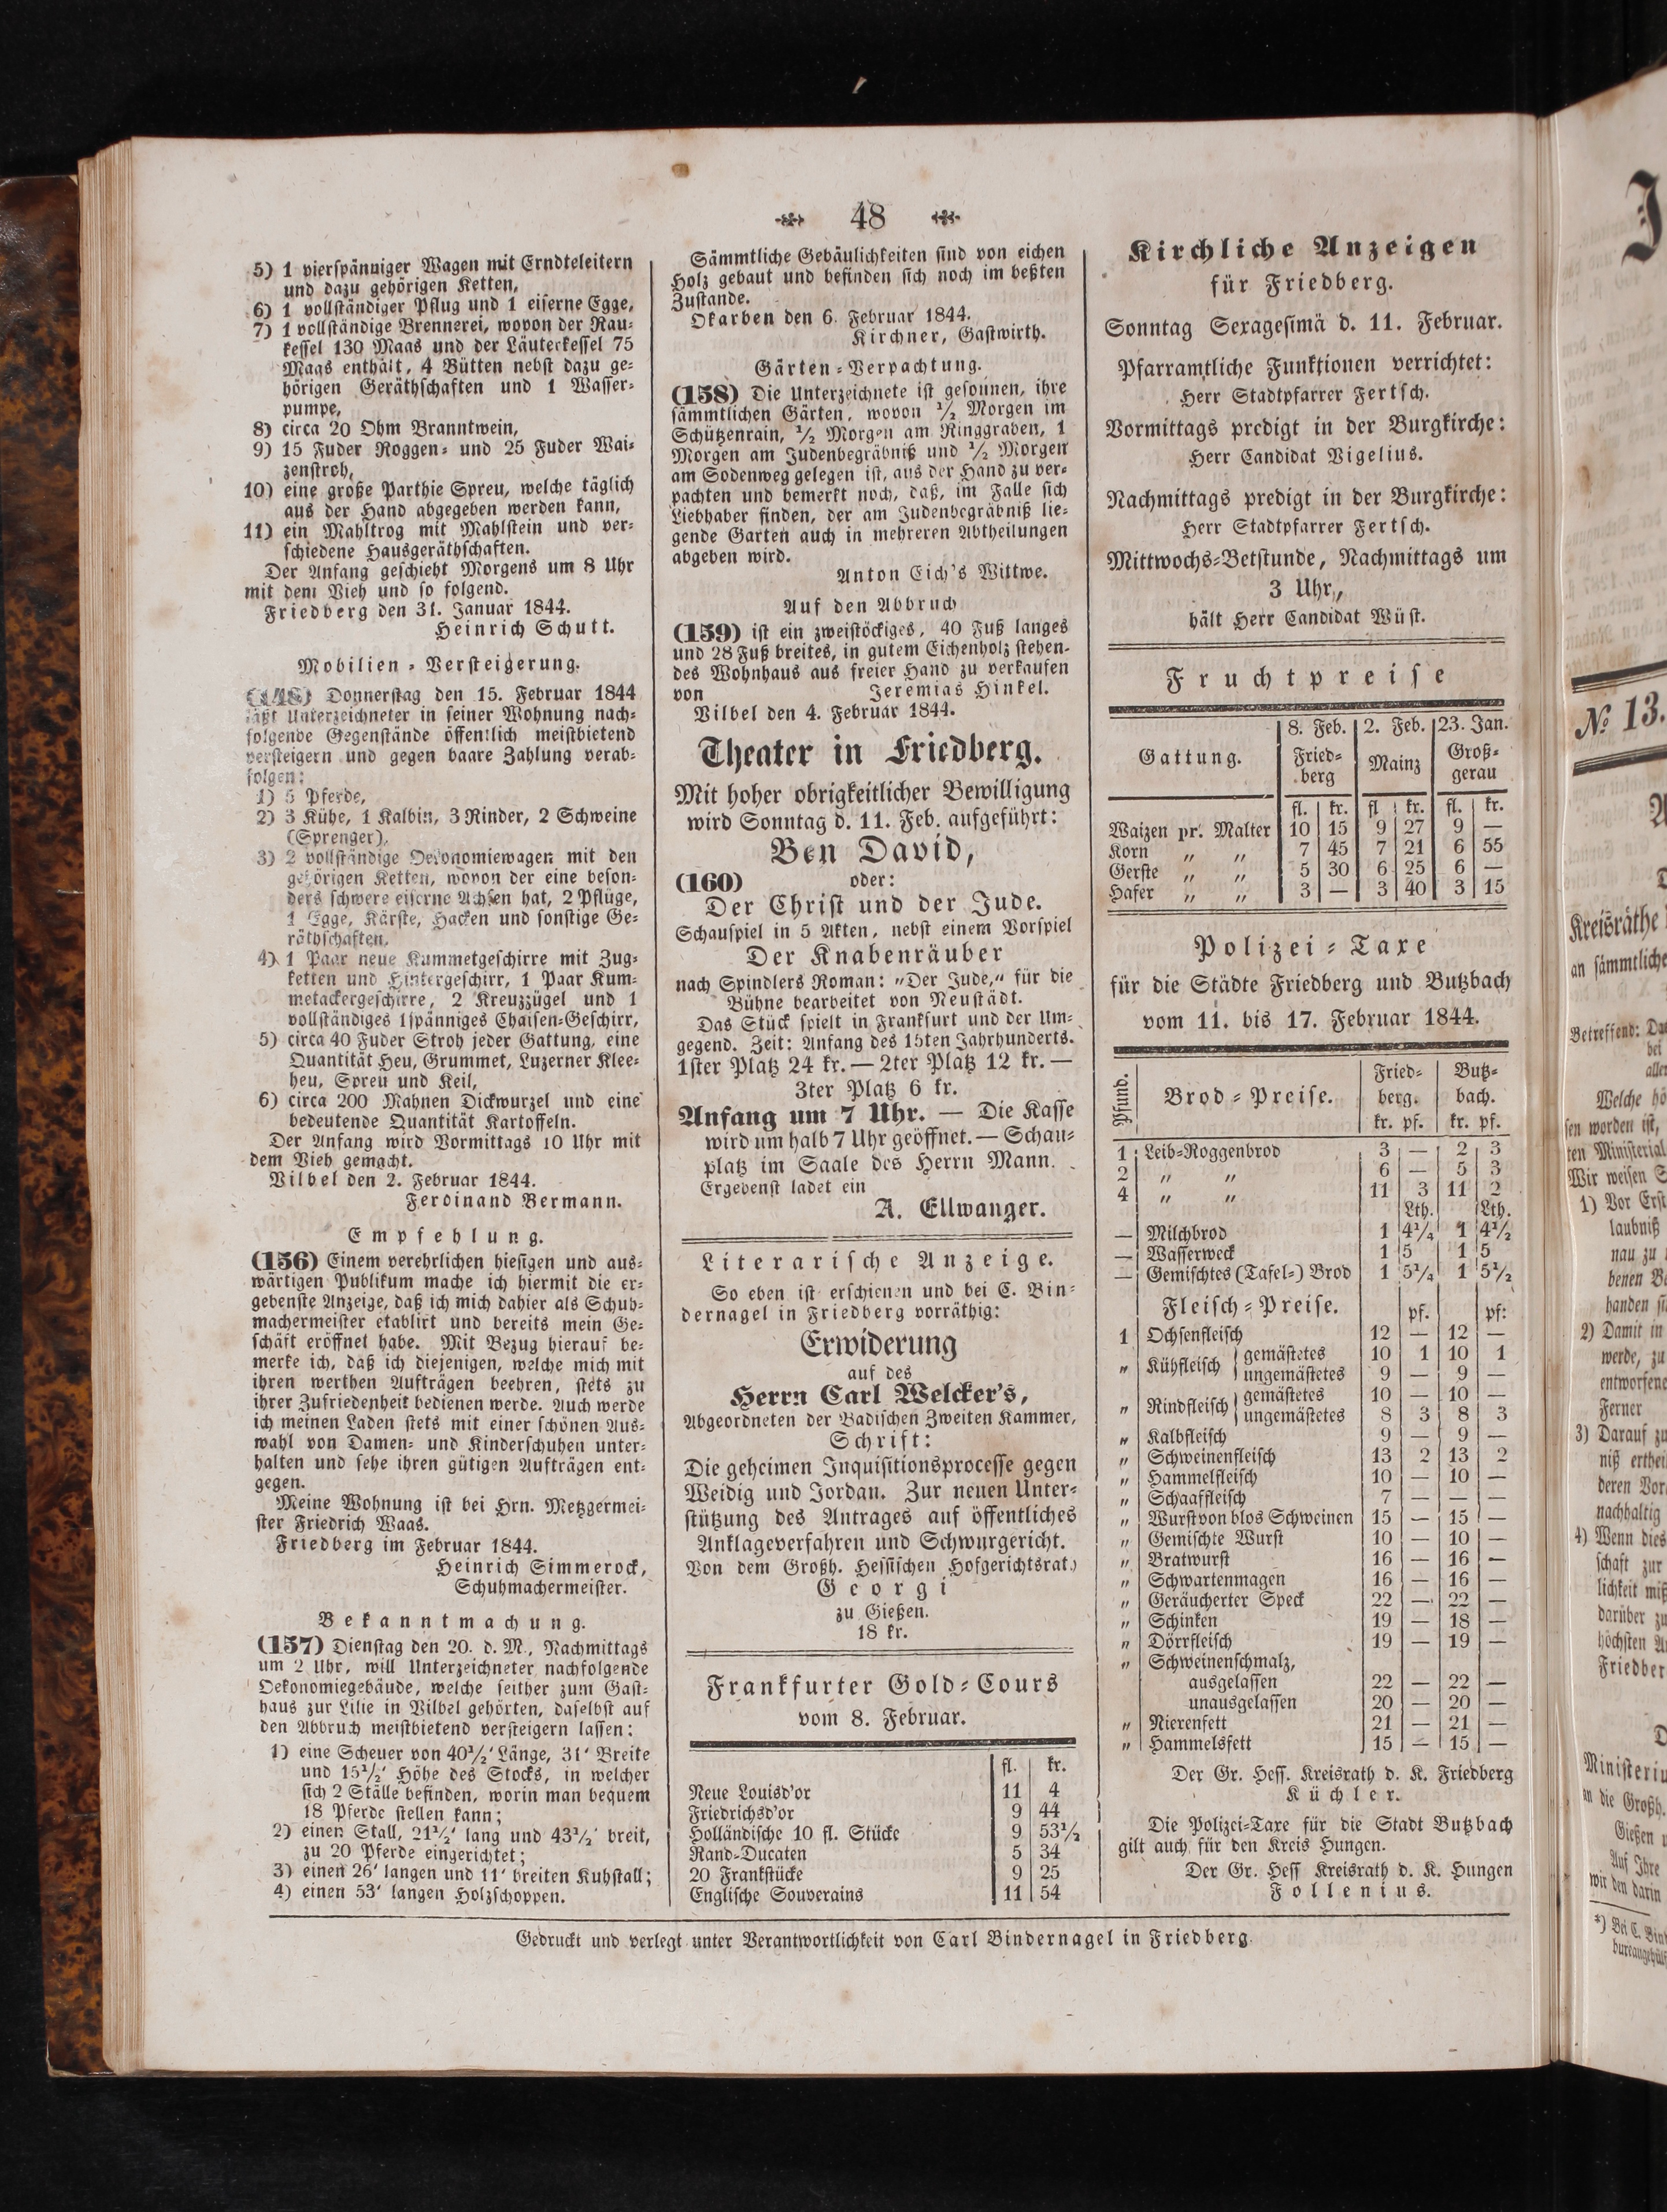 48
5) 1 vierspänniger Wagen mit Erndteleitern
und dazu gehörigen Ketten,
6) 1 vollständiger Pflug und 1 eiserne Egge,
7) 1 vollständige Brennerei, wovon der Rau-
kessel 130 Maas und der Läuterkessel 75
Maas enthält, 4 Bütten nebst dazu ge-
hörigen Geräthschaften und 1 Wasser-
pumpe,
8) circa 20 Ohm Branntwein,
9) 15 Fuder Roggen- und 25 Fuder Wai-
zenstroh,
10) eine große Parthie Spreu, welche täglich
aus der Hand abgegeben werden kann,
11) ein Mahltrog mit Mahlstein und ver-
schiedene Hausgeräthschaften.
Der Anfang geschieht Morgens um 8 Uhr
mit dem Vieh und so folgend.
Friedberg den 31. Januar 1844.
Heinrich Schutt.
Mobilien-Versteigerung.
(148) Donnerstag den 15. Februar 1844
läßt Unterzeichneter in seiner Wohnung nach-
folgende Gegenstände öffentlich meistbietend
versteigern und gegen baare Zahlung verab-
folgen:
1) 5 Pferde,
2) 3 Kühe, 1 Kalbin, 3 Rinder, 2 Schweine
(Sprenger),
3) 2 vollständige Oeconomiewagen mit den
gehörigen Ketten, wovon der eine beson-
ders schwere eiserne Achsen hat, 2 Pflüge,
1 Egge, Kärste, Hacken und sonstige Ge-
räthschaften,
4) 1 Paar neue Kummetgeschirre mit Zug-
ketten und Hintergeschirr, 1 Paar Kum-
metackergeschirre, 2 Kreuzzügel und 1
vollständiges 1spänniges Chaisen-Geschirr,
5) circa 40 Fuder Stroh jeder Gattung, eine
Quantität Heu, Grummet, Luzerner Klee-
heu, Spreu und Keil,
6) circa 200 Mahnen Dickwurzel und eine
bedeutende Quantität Kartoffeln.
Der Anfang wird Vormittags 10 Uhr mit
dem Vieh gemacht.
Vilbel den 2. Februar 1844.
Ferdinand Bermann.
Empfehlung.
(156) Einem verehrlichen hiesigen und aus-
wärtigen Publikum mache ich hiermit die er-
gebenste Anzeige, daß ich mich dahier als Schuh-
machermeister etablirt und bereits mein Ge-
schäft eröffnet habe. Mit Bezug hierauf be-
merke ich, daß ich diejenigen, welche mich mit
ihren werthen Aufträgen beehren, stets zu
ihrer Zufriedenheit bedienen werde. Auch werde
ich meinen Laden stets mit einer schönen Aus-
wahl von Damen- und Kinderschuhen unter-
halten und sehe ihren gütigen Aufträgen ent-
gegen.
Meine Wohnung ist bei Hrn. Metzgermei-
ster Friedrich Waas.
Friedberg im Februar 1844.
Heinrich Simmerock,
Schuhmachermeister.
Bekanntmachung.
(157) Dienstag den 20. d. M., Nachmittags
um 2 Uhr, will Unterzeichneter nachfolgende
Oekonomiegebäude, welche seither zum Gast-
haus zur Lilie in Vilbel gehörten, daselbst auf
den Abbruch meistbietend versteigern lassen:
1) eine Scheuer von 40½' Länge, 31' Breite
und 15½' Höhe des Stocks, in welcher
sich 2 Ställe befinden, worin man bequem
18 Pferde stellen kann;
2) einen Stall, 21½' lang und 43½' breit,
zu 20 Pferde eingerichtet;
3) einen 26' langen und 11' breiten Kuhstall;
4) einen 53' langen Holzschoppen.
Sämmtliche Gebäulichkeiten sind von eichen
Holz gebaut und befinden sich noch im beßten
Zustande.
Okarben den 6. Februar 1844.
Kirchner, Gastwirth.
Gärten-Verpachtung.
(158) Die Unterzeichnete ist gesonnen, ihre
sämmtlichen Gärten, wovon ½ Morgen im
Schützenrain, ½ Morgen am Ringgraben, 1
Morgen am Judenbegräbniß und ½ Morgen
am Sodenweg gelegen ist, aus der Hand zu ver-
pachten und bemerkt noch, daß, im Falle sich
Liebhaber finden, der am Judenbegräbniß lie-
gende Garten auch in mehreren Abtheilungen
abgeben wird.
Anton Eich's Wittwe.
Auf den Abbruch
(159) ist ein zweistöckiges, 40 Fuß langes
und 28 Fuß breites, in gutem Eichenholz stehen-
des Wohnhaus aus freier Hand zu verkaufen
von Jeremias Hinkel.
Vilbel den 4. Februar 1844.
Theater in Friedberg.
Mit hoher obrigkeitlicher Bewilligung
wird Sonntag d. 11. Feb. aufgeführt:
Ben David,
(160) oder:
Der Christ und der Jude.
Schauspiel in 5 Akten, nebst einem Vorspiel
Der Knabenräuber
nach Spindlers Roman: „Der Jude," für die
Bühne bearbeitet von Neustädt.
Das Stück spielt in Frankfurt und der Um-
gegend. Zeit: Anfang des 15ten Jahrhunderts.
1ster Platz 24 kr. — 2ter Platz 12 kr. —
3ter Platz 6 kr.
Anfang um 7 Uhr. — Die Kasse
wird um halb 7 Uhr geöffnet. — Schau-
platz im Saale des Herrn Mann.
Ergebenst ladet ein
A. Ellwanger.
Literarische Anzeige.
So eben ist erschienen und bei C. Bin-
dernagel in Friedberg vorräthig:
Erwiderung
auf des
Herrn Carl Welcker's,
Abgeordneten der Badischen Zweiten Kammer,
Schrift:
Die geheimen Inquisitionsprocesse gegen
Weidig und Jordan. Zur neuen Unter-
stützung des Antrages auf öffentliches
Anklageverfahren und Schwurgericht.
Von dem Großh. Hessischen Hofgerichtsrath
Georgi
zu Gießen.
18 kr.
Frankfurter Gold-Cours
vom 8. Februar.
fl. kr.
Neue Louisd'or 11 4
Friedrichsd'or 9 44
Holländische 10 fl. Stücke 9 53½
Rand-Ducaten 5 34
20 Frankstücke 9 25
Englische Souverains 11 54
Kirchliche Anzeigen
für Friedberg.
Sonntag Sexagesimä d. 11. Februar.
Pfarramtliche Funktionen verrichtet:
Herr Stadtpfarrer Fertsch.
Vormittags predigt in der Burgkirche:
Herr Candidat Vigelius.
Nachmittags predigt in der Burgkirche:
Herr Stadtpfarrer Fertsch.
Mittwochs-Betstunde, Nachmittags um
3 Uhr,
hält Herr Candidat Wüst.
Fruchtpreise
Gattung. 8. Feb. 2. Feb. 23. Jan.
Fried-berg Mainz Groß-gerau
fl. kr. fl kr. fl. kr.
Waizen pr. Malter 10 15 9 27 9 —
Korn „ „ 7 45 7 21 6 55
Gerste „ „ 5 30 6 25 6 —
Hafer „ „ 3 — 3 40 3 15
Polizei-Taxe
für die Städte Friedberg und Butzbach
vom 11. bis 17. Februar 1844.
Pfund. Brod-Preise. Fried-berg. Butz-bach.
kr. pf. kr. pf.
1 Leib-Roggenbrod 3 — 2 3
2 „ „ 6 — 5 3
4 „ „ 11 3 11 2
Lth. Lth.
— Milchbrod 1 4¼ 1 4½
— Wasserweck 1 5 1 5
— Gemischtes (Tafel-) Brod 1 5¼ 1 5½
Fleisch-Preise. pf. pf:
1 Ochsenfleisch 12 — 12 —
„ Kühfleisch gemästetes 10 1 10 1
ungemästetes 9 — 9 —
„ Rindfleisch gemästetes 10 — 10 —
ungemästetes 8 3 8 3
„ Kalbfleisch 9 — 9 —
„ Schweinenfleisch 13 2 13 2
„ Hammelfleisch 10 — 10 —
„ Schaaffleisch 7 — — —
„ Wurst von blos Schweinen 15 — 15 —
„ Gemischte Wurst 10 — 10 —
„ Bratwurst 16 — 16 —
„ Schwartenmagen 16 — 16 —
„ Geräucherter Speck 22 — 22 —
„ Schinken 19 — 18 —
„ Dörrfleisch 19 — 19 —
„ Schweinenschmalz,
ausgelassen 22 — 22 —
unausgelassen 20 — 20 —
„ Nierenfett 21 — 21 —
„ Hammelsfett 15 — 15 —
Der Gr. Hess. Kreisrath d. K. Friedberg
Küchler.
Die Polizei-Taxe für die Stadt Butzbach
gilt auch für den Kreis Hungen.
Der Gr. Hess Kreisrath d. K. Hungen
Follenius.
Gedruckt und verlegt unter Verantwortlichkeit von Carl Bindernagel in Friedberg.
№ 13.
Kreisräthe
an sämmtliche
Betreffend:
bei
Welche
sen worden ist,
ten
Wir weisen
1) Vor
laubniß
nau zu
benen
handen
2) Damit in
werde, zu
entworfene
Ferner
3) Darauf zu
niß
deren
nachhaltig
4) Wenn dies
schaft zur
lichkeit
darüber zu
höchsten
an die Großh.
Gießen
Auf Ihre
wir den darin